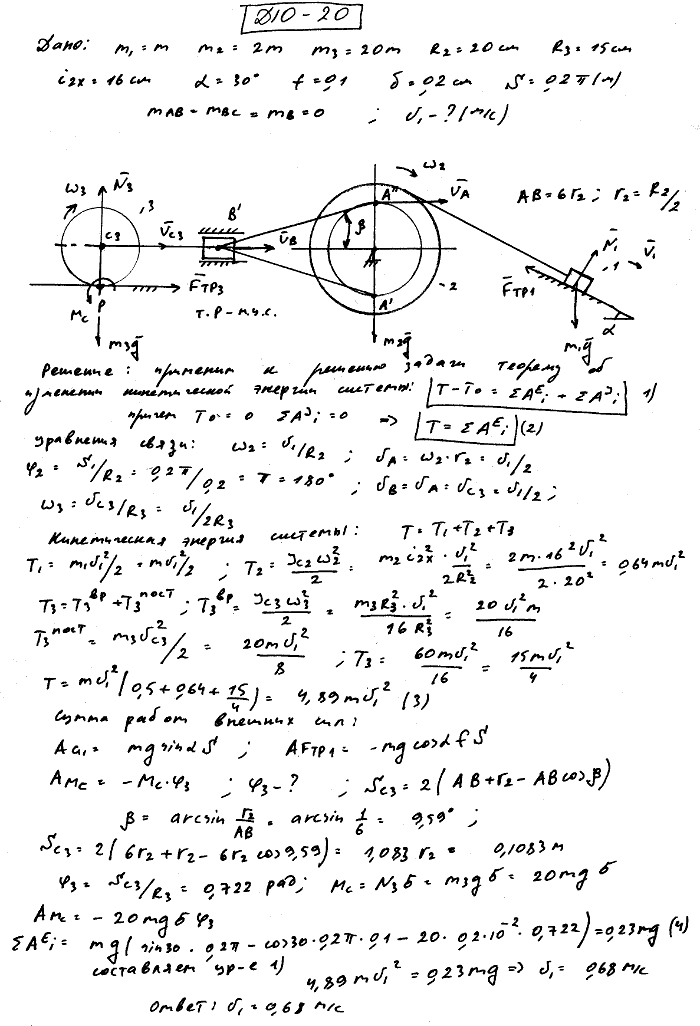 Д10-20
Дано: m₁=m m₂=2m m₃=20m R₂=20см R₃=15см
i₂ₓ=16см α=30° f=0,1 δ=0,2см S=0,2π(м)
m_AB=m_BC=m_B=0 ; V₁-?(м/с)
ω₃ N̄₃ ,3 B' ω₂
A'' V̄_A AB=6r₂; r₂=R₂/2
C₃ V̄_C3 V̄_B β A N̄₁ -1 V̄₁
F̄_ТР3 F̄_ТР1
M_C P т.Р-м.ц.с. A' -2 α
m₃ḡ m₂ḡ m₁ḡ
Решение: применим к решению задачи теорему об
изменении кинетической энергии системы: T-T₀=ΣAᴱᵢ+ΣAᴶᵢ 1)
причем T₀=0 ΣAᴶᵢ=0 => T=ΣAᴱᵢ (2)
уравнения связи: ω₂=V₁/R₂ ; V_A=ω₂·r₂=V₁/2
φ₂=S₁/R₂=0,2π/0,2=π=180° ; V_B=V_A=V_C3=V₁/2;
ω₃=V_C3/R₃=V₁/2R₃
Кинетическая энергия системы: T=T₁+T₂+T₃
T₁=m₁V₁²/2=mV₁²/2 ; T₂=J_C2ω₂²/2=m₂i₂ₓ²·V₁²/2R₂²=2m·16²V₁²/2·20²=0,64mV₁²
T₃=T₃ᵇᵖ+T₃ᵖᵒˢᵗ ; T₃ᵇᵖ=J_C3ω₃²/2=m₃R₃²·V₁²/16R₃²=20V₁²m/16
T₃ᵖᵒˢᵗ=m₃V_C3²/2=20mV₁²/8 ; T₃=60mV₁²/16=15mV₁²/4
T=mV₁²(0,5+0,64+15/4)=4,89mV₁² (3)
сумма работ внешних сил:
A_G1=mg sinα S ; A_FТР1=-mg cosα f S
A_MC=-M_C·φ₃ ; φ₃-? ; S_C3=2(AB+r₂-ABcosβ)
β=arcsin r₂/AB=arcsin 1/6=9,59° ;
S_C3=2(6r₂+r₂-6r₂cos9,59)=1,083r₂=0,1083м
φ₃=S_C3/R₃=0,722 рад; M_C=N₃δ=m₃gδ=20mgδ
A_MC=-20mgδφ₃
ΣAᴱᵢ=mg(sin30·0,2π-cos30·0,2π·0,1-20·0,2·10⁻²·0,722)=0,23mg (4)
составляем ур-е 1) 4,89mV₁²=0,23mg => V₁=0,68м/с
Ответ: V₁=0,68м/с